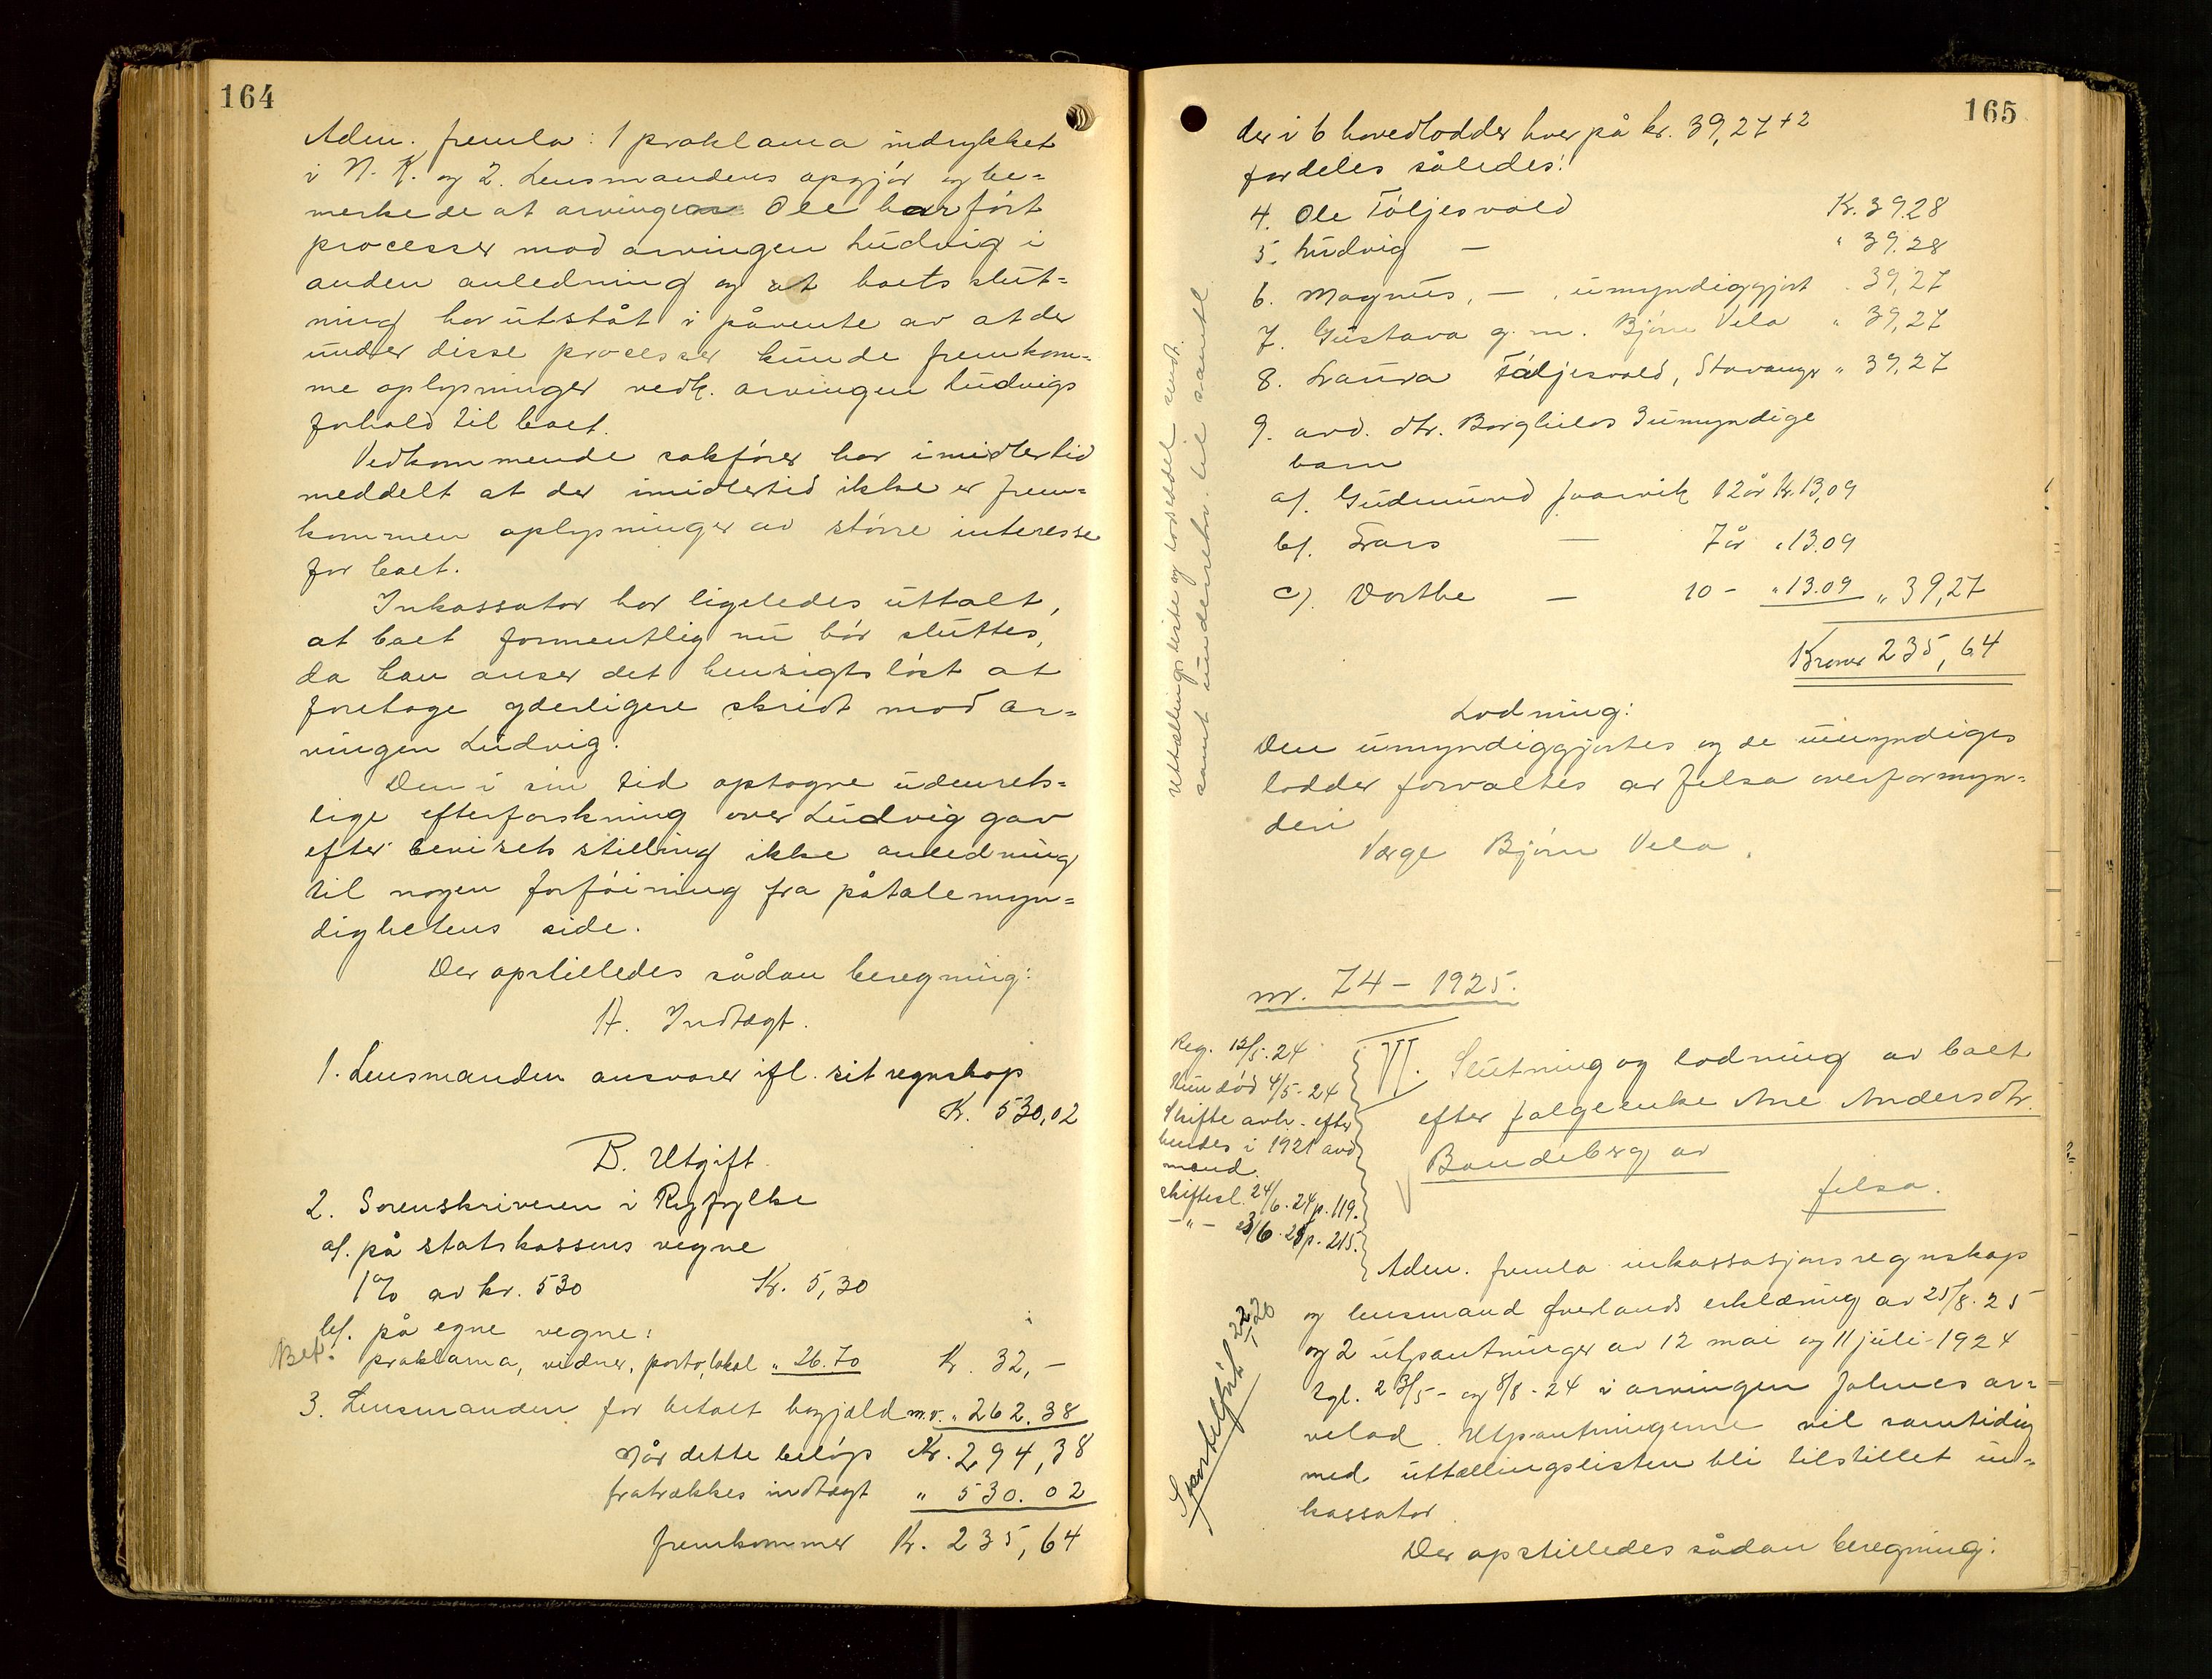 164
Adm. fremla: 1 proklama indrykket
i N. K. og 2. Lensmandens opgjör og be=
merkede at arvingen Ole har fört
processer mod arvingen Ludvig i
anden anledning og at boets slut=
ning har utståt i påvente av at der
under disse processer kunde fremkom=
me oplysninger vedk. arvingen Ludvigs
forhold til boet.
Vedkommende sakförer har imidlertid
meddelt at der imidlertid ikke er frem=
kommen oplysninger av större interesse
for boet.
Inkassator har ligeledes uttalt,
at boet formentlig nu bör sluttes,
da han anser det hensigtslöst at
foretage yderligere skridt mod ar=
vingen Ludvig.
Den i sin tid optagne udenrets=
lige efterforskning over Ludvig gav
efter bevisets stilling ikke anledning
til nogen forföining fra påtalemyn=
dighetens side.
Der opstilledes sådan beregning:
A. Indtægt.
1. Lensmanden ansvarer ifl. sit regnskap
Kr. 530,02
B. Utgift.
2. Sorenskriveren i Ryfylke
a/. på statskassens vegne
1% av kr. 530 Kr. 5,30
b/. på egne vegne:
Bet. proklama, vidner, porto, lokal " 26.70 Kr. 32,-
3. Lensmanden for betalt bogjæld m.v. " 262.38
Når dette belöp Kr. 294,38
fratrækkes indtægt " 530.02
fremkommer Kr. 235,64
165
der i 6 hovedlodder hver på kr. 39,27 + 2
fordeles således:
4. Ole Töljesvold Kr. 39.28
5. Ludvig — " 39.28
6. Magnus, — , umyndiggjort " 39,27
7. Gustava g. m. Bjørn Vela " 39,27
8. Laura Töljesvold, Stavanger " 39,27
9. avd. dtr. Borghilds 3 umyndige
barn
a/. Gudmund Jaarvik 12 år Kr. 13,09
b/. Lars — 7 år " 13.09
c/. Dorthe — 10 - " 13.09 " 39,27
Kroner 235,64
Utbetalingsliste og lodseddel sendt.
samt underretn. til samtl.
Lodning:
Den umyndiggjortes og de umyndiges
lodder forvaltes av Jelsa overformyn=
deri
Værge Björn Vela.
nr. 74 - 1925.
Reg. 12/5.24
Hun död 4/5-24
Skifte avh. efter
hendes i 1921 avd
mand.
skiftesl. 24/6.24 p. 119.
-"- 23/6.25 p. 215.
VI. Slutning og lodning av boet
efter folgeenke Ane Andersdtr.
Bandeberg av
Jelsa.
Sportelfrit 22/7 20
Adm. fremla inkassasjonsregnskap
og lensmand Överlands erklæring av 25/8.25
og 2 utpantninger av 12 mai og 11 juli 1924
tgl. 23/5- og 8/8-24 i arvingen Johnes ar=
velod. Utpantningerne vil samtidig
med uttællingslisten bli tilstillet in=
kassator.
Der opstilledes sådan beregning: